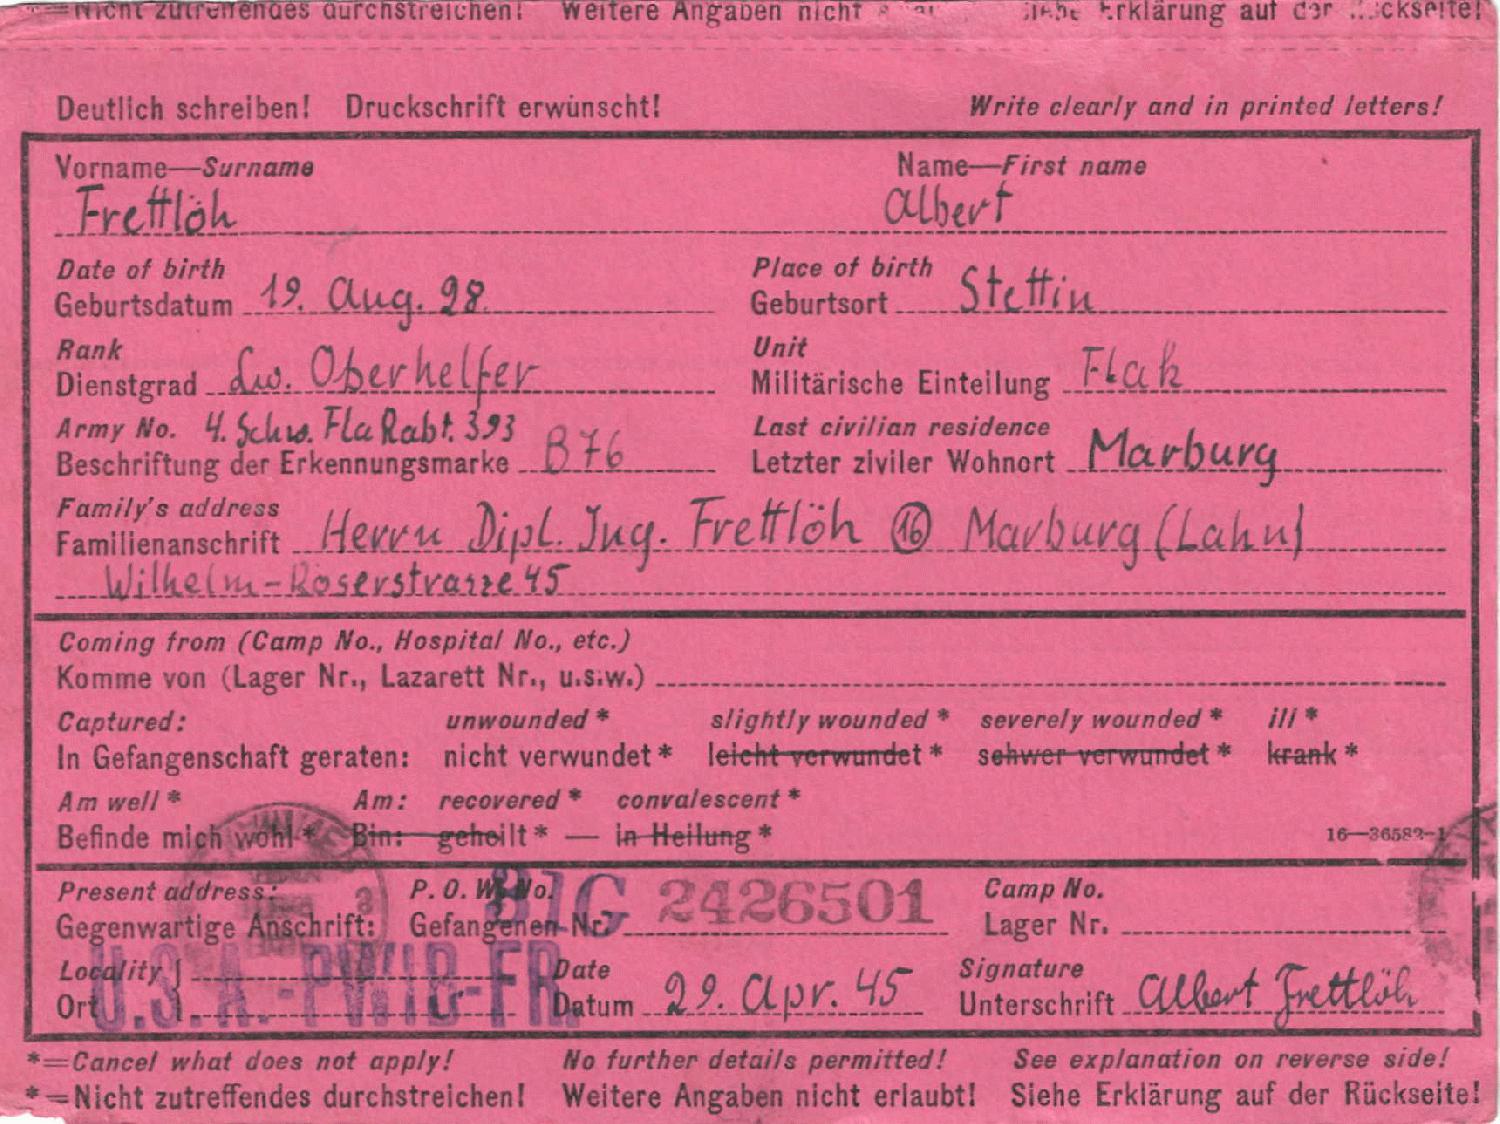 *=Nicht zutreffendes durchstreichen! Weitere Angaben nicht Erklärung auf der Rückseite!
Deutlich schreiben! Druckschrift erwünscht! Write clearly and in printed letters!
Vorname—Surname Name—First name
Frettlöh Albert
Date of birth Place of birth
Geburtsdatum 19. Aug. 28. Geburtsort Stettin
Rank Unit
Dienstgrad Lw. Oberhelfer Militärische Einteilung Flak
Army No. 4. Schw. Fla Rabt. 393 Last civilian residence
Beschriftung der Erkennungsmarke B76 Letzter ziviler Wohnort Marburg
Family's address
Familienanschrift Herrn Dipl. Ing. Frettlöh (16) Marburg (Lahn)
Wilhelm-Roserstrasse 45
Coming from (Camp No., Hospital No., etc.)
Komme von (Lager Nr., Lazarett Nr., u.s.w.)
Captured: unwounded * slightly wounded * severely wounded * ill *
In Gefangenschaft geraten: nicht verwundet * leicht verwundet * schwer verwundet * krank *
Am well * Am: recovered * convalescent *
Befinde mich wohl * Bin: geheilt * — in Heilung *
16—36582-1
Present address: P. O. W. No. Camp No.
Gegenwartige Anschrift: Gefangenen Nr. 31G 2426501 Lager Nr.
Locality Date Signature
Ort U.S.A.-PWIB-FR. Datum 29. Apr. 45 Unterschrift Albert Frettlöh
*=Cancel what does not apply! No further details permitted! See explanation on reverse side!
*=Nicht zutreffendes durchstreichen! Weitere Angaben nicht erlaubt! Siehe Erklärung auf der Rückseite!